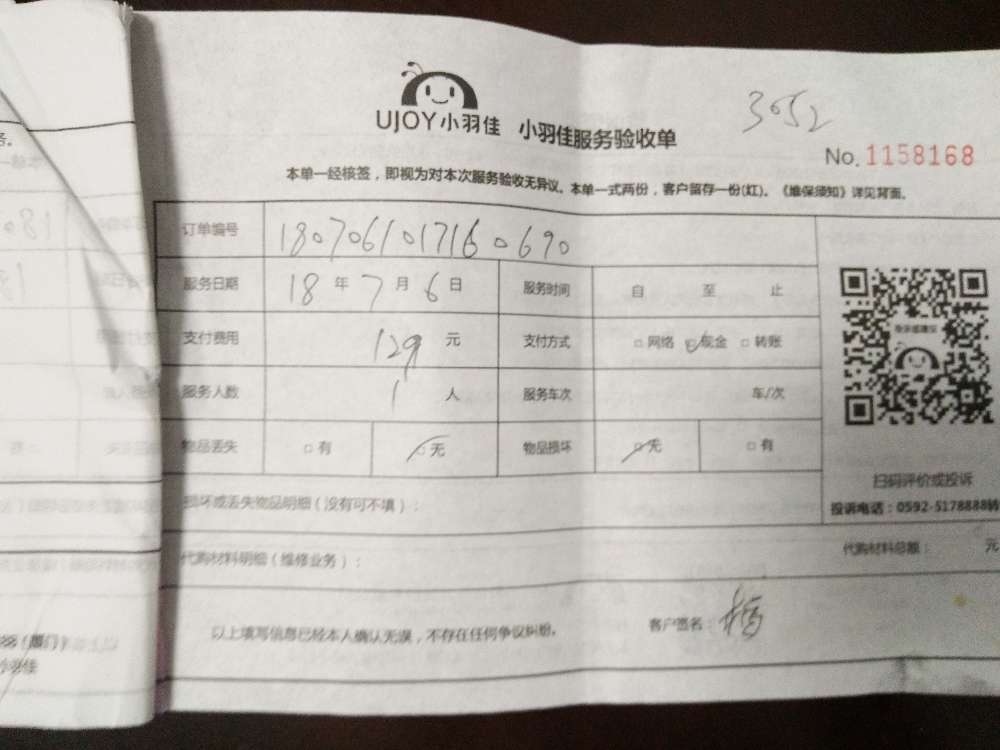 3052
UJOY小羽佳 小羽佳服务验收单
No. 1158168
本单一经核签，即视为对本次服务验收无异议。本单一式两份，客户留存一份(红)。《维保须知》详见背面。
订单编号 1807061017160690
服务日期 18 年 7 月 6 日 服务时间 自 至 止
支付费用 129 元 支付方式 □网络 ☑现金 □转账
服务人数 1 人 服务车次 车/次
物品丢失 □有 ☑无 物品损坏 ☑无 □有
扫码评价或投诉
投诉电话：0592-5178888转
损坏或丢失物品明细（没有可不填）：
代购材料明细（维修业务）： 代购材料总额： 元
以上填写信息已经本人确认无误，不存在任何争议纠纷。 客户签名：